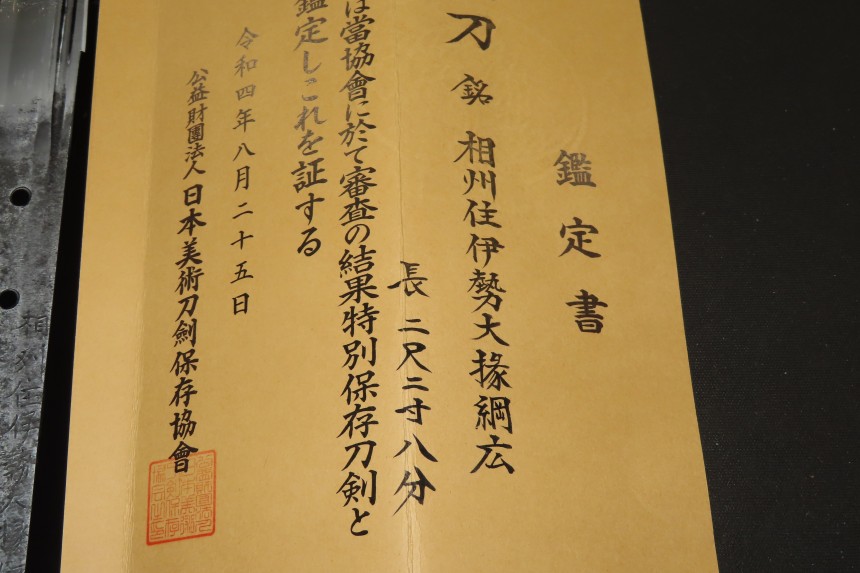 鑑定書
刀 銘 相州住伊勢大掾綱広
長 二尺二寸八分
は當協會に於て審査の結果特別保存刀剣と
鑑定しこれを証する
令和四年八月二十五日
公益財團法人日本美術刀劍保存協會
相州住伊勢大